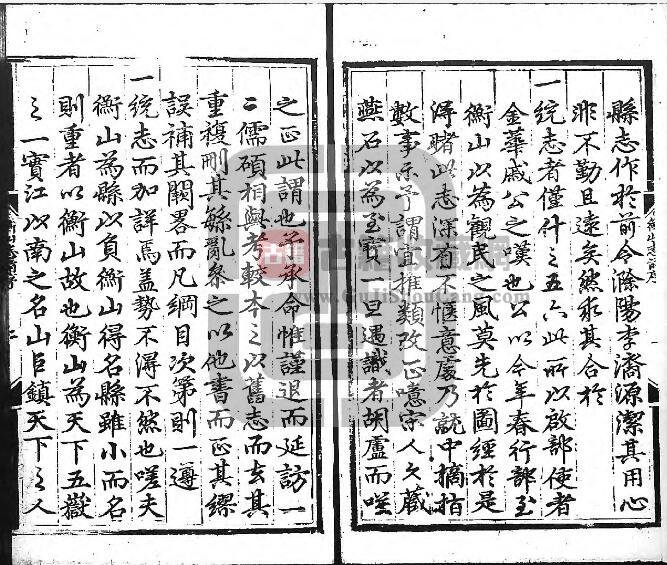 縣志作於前令滁陽李濟源潔其用心
非不勤且遠矣然求其合於
一
統志者僅什之五六此所以啟部使者
金華戚公之嘆也公以今年春行部至
衡山以為觀民之風莫先於圖經於是
淂睹此志深有不愜意處乃就中摘指
數事示予謂宜推類改正噫宋人久蔵
燕石以為至寳一旦遇識者胡盧而唉
之正此謂也予承命惟謹退而延訪一
二儒碩相與考較本之以舊志而去其
重複刪其繁亂叅之以他書而正其繆
誤補其闕畧而凡綱目次第則一遵
一
統志而加詳焉盖勢不淂不然也嗟夫
衡山為縣以負衡山得名縣雖小而名
則重者以衡山故也衡山為天下五嶽
之一實江以南之名山巨鎮天下之人
古籍收藏网
www.GuJiShouCang.com